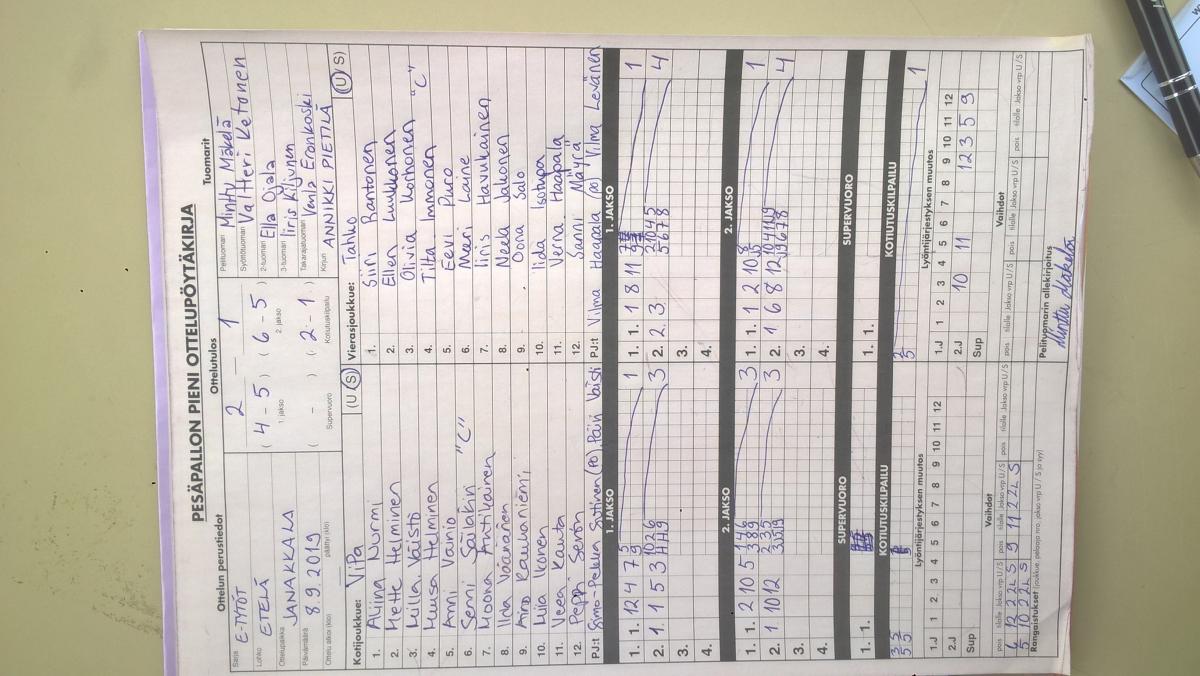 PESÄPALLON PIENI OTTELUPÖYTÄKIRJA
Ottelun perustiedot
Sarja E-TYTÖT
Lohko ETELÄ
Ottelupaikka JANAKKALA
Päivämäärä 8.9.2019
Ottelu alkoi (klo) päättyi (klo)
Ottelutulos
2 — 1
( 4 - 5 ) ( 6 - 5 )
1. jakso 2. jakso
( - ) ( 2 - 1 )
Supervuoro Kotiutuskilpailu
Tuomarit
Pelituomari Minttu Mäkelä
Syöttötuomari Valtteri Ketonen
2-tuomari Ella Ojala
3-tuomari Iiris Kiljunen
Takarajatuomari Venla Eronkoski
Kirjuri ANNIKKI PIETILÄ
Kotijoukkue: ViPa (U / S)
1. Aliina Nurmi
2. Mette Helminen
3. Milla Väistö
4. Muusa Helminen
5. Anni Vainio
6. Senni Säilärin "C"
7. Moona Anttilainen
8. Ilda Väänänen
9. Aino Rauhaniemi
10. Miia Ikonen
11. Veea Kauta
12. Peppi Serón
PJ:t Simo-Pekka Sutinen (PO) Päivi Väistö
Vierasjoukkue: Tahko (U / S)
1. Siiri Rantonen
2. Ellen Luukkonen
3. Olivia Korhonen
4. Tilta Immonen "C"
5. Eevi Puro
6. Meeri Laine
7. Iiris Havukainen
8. Neela Jakonen
9. Oona Salo
10. Iida Isotupa
11. Verna Haapala
12. Sanni Mätyriä
PJ:t Vilma Haapala (PO) Vilma Levänen
1. JAKSO
1. 1. 12 4 7 5 1
2. 1. 1 5 3 3
3.
4.
1. JAKSO
1. 1. 1 8 11 1
2. 2. 3 4
3.
4.
2. JAKSO
1. 1. 2 10 5 3
2. 1 10 12 3
3.
4.
2. JAKSO
1. 1. 1 2 10 1
2. 1 6 8 12 4
3.
4.
SUPERVUORO
1. 1.
SUPERVUORO
1. 1.
KOTIUTUSKILPAILU
KOTIUTUSKILPAILU
1
Lyöntijärjestyksen muutos
1.J 1 2 3 4 5 6 7 8 9 10 11 12
2.J
Sup
Lyöntijärjestyksen muutos
1.J 1 2 3 4 5 6 7 8 9 10 11 12
2.J 10 11 12 3 5 9
Sup
Vaihdot
pois tilalle Jakso vrp U / S pois tilalle Jakso vrp U / S pois tilalle Jakso vrp U / S
6 12 2 2L S 9 11 2 2L S
5 10 2 2L S
Vaihdot
pois tilalle Jakso vrp U / S pois tilalle Jakso vrp U / S pois tilalle Jakso vrp U / S
Rangaistukset (joukkue, pelaaja nro, jakso vrp U / S ja syy)
Pelituomarin allekirjoitus
Minttu Mäkelä